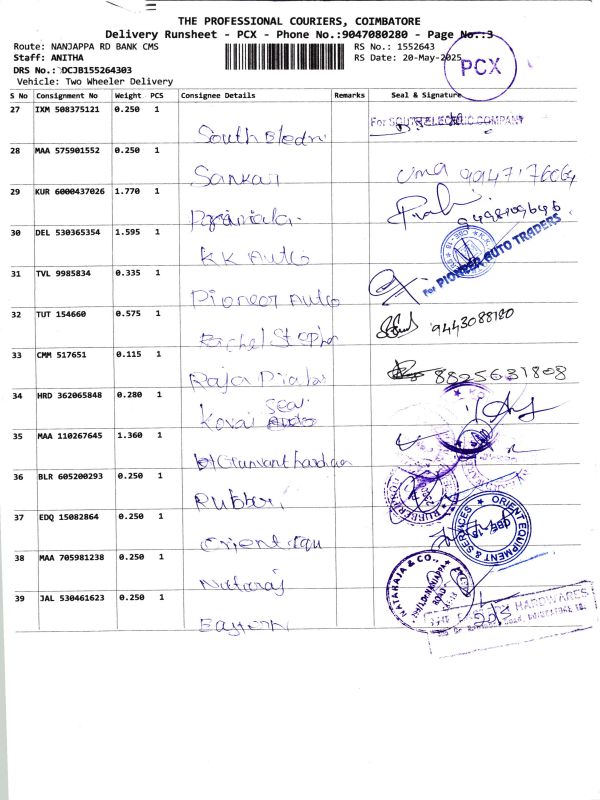 THE PROFESSIONAL COURIERS, COIMBATORE
Delivery Runsheet - PCX - Phone No.:9047080280 - Page No.:3
Route: NANJAPPA RD BANK CMS
RS No.: 1552643
Staff: ANITHA
RS Date: 20-May-2025
PCX
DRS No.: DCJB155264303
Vehicle: Two Wheeler Delivery
S No Consignment No Weight PCS Consignee Details Remarks Seal & Signature
27 IXM 508375121 0.250 1
For SOUTH ELECTRIC COMPANY
28 MAA 575901552 0.250 1
Sankar
Uma
29 KUR 6000437026 1.770 1
30 DEL 530365354 1.595 1
KK Auto
For PIONEER AUTO TRADERS
31 TVL 9985834 0.335 1
Pioneer Auto
32 TUT 154660 0.575 1
9443088180
Rachel Stephen
33 CMM 517651 0.115 1
8825631808
Raja
34 HRD 362065848 0.280 1
Kovai Seai
35 MAA 110267645 1.360 1
36 BLR 605200293 0.250 1
Rubber
37 EDQ 15082864 0.250 1
ORIENT EQUIPMENT & SERVICES
Orient
38 MAA 705981238 0.250 1
NATARAJA & CO.,
Nataraj
39 JAL 530461623 0.250 1
HARDWARES
Eastern